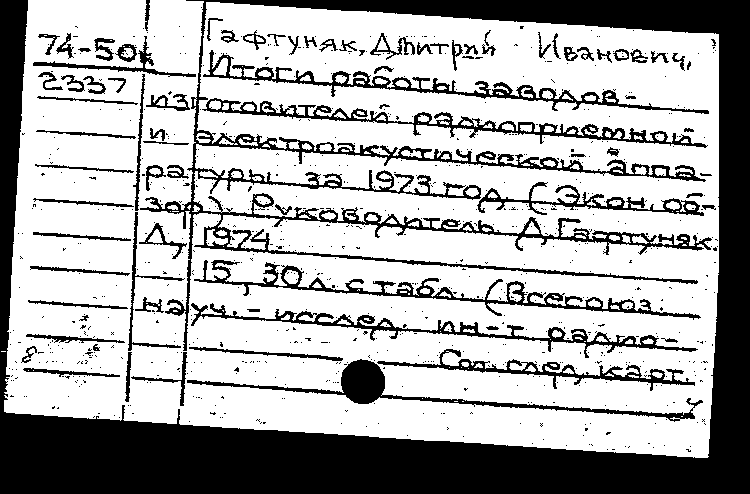 Гафтуняк, Дмитрий Иванович.
74-50к Итоги работы заводов-
2337 изготовителей радиоприемной
и электроакустической аппа-
ратуры за 1973 год (Экон. об-
зор). Руководитель Д. Гафтуняк.
Л., 1974.
15, 30 л. с табл. (Всесоюз.
науч.-исслед. ин-т радио-
8 См. след. карт.